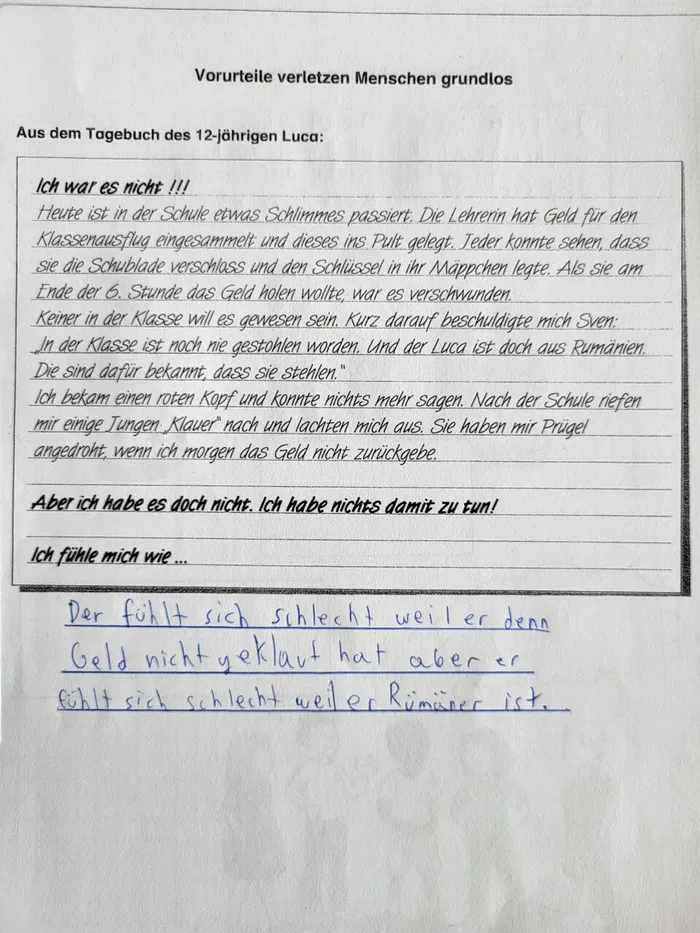 Vorurteile verletzen Menschen grundlos
Aus dem Tagebuch des 12-jährigen Luca:
Ich war es nicht !!!
Heute ist in der Schule etwas Schlimmes passiert. Die Lehrerin hat Geld für den
Klassenausflug eingesammelt und dieses ins Pult gelegt. Jeder konnte sehen, dass
sie die Schublade verschloss und den Schlüssel in ihr Mäppchen legte. Als sie am
Ende der 6. Stunde das Geld holen wollte, war es verschwunden.
Keiner in der Klasse will es gewesen sein. Kurz darauf beschuldigte mich Sven:
„In der Klasse ist noch nie gestohlen worden. Und der Luca ist doch aus Rumänien.
Die sind dafür bekannt, dass sie stehlen."
Ich bekam einen roten Kopf und konnte nichts mehr sagen. Nach der Schule riefen
mir einige Jungen „Klauer" nach und lachten mich aus. Sie haben mir Prügel
angedroht, wenn ich morgen das Geld nicht zurückgebe.
Aber ich habe es doch nicht. Ich habe nichts damit zu tun!
Ich fühle mich wie ...
Der fühlt sich schlecht weil er denn
Geld nicht geklaut hat aber er
fühlt sich schlecht weil er Rümäner ist.